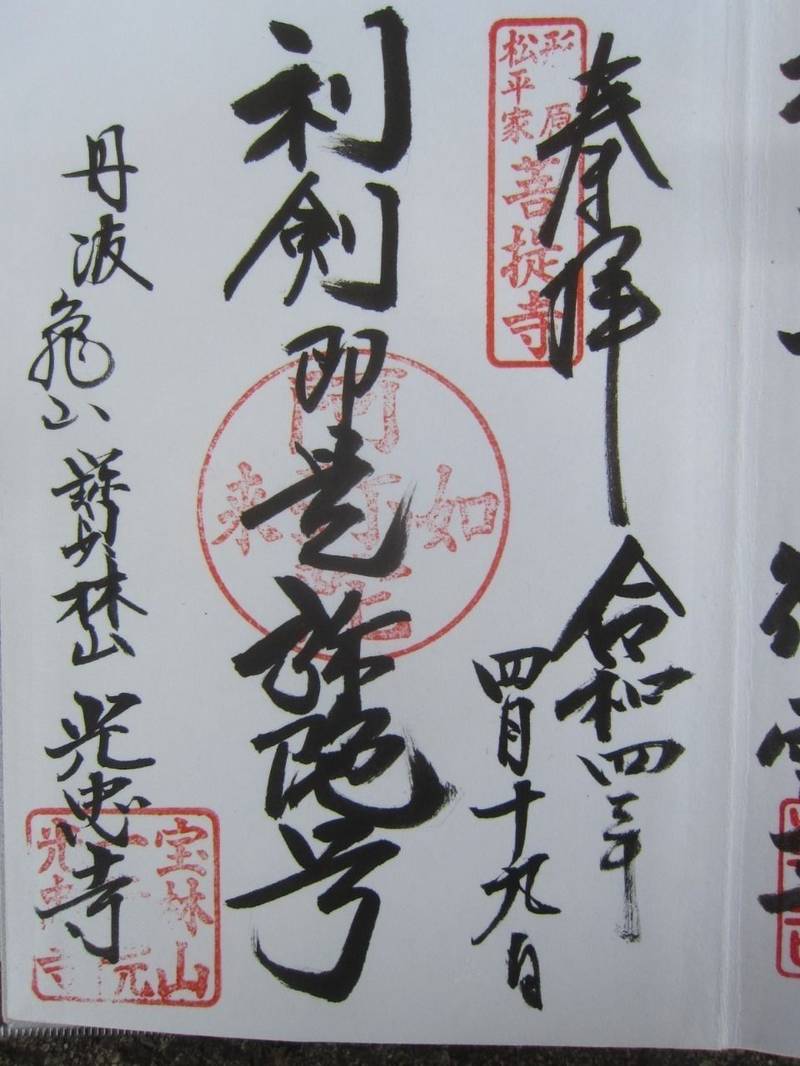 奉拝
令和四年
四月十九日
形原
松平家
菩提寺
利剣即是弥陀号
阿弥陀
如来
丹波亀山寳林山光忠寺
宝林山
光忠寺